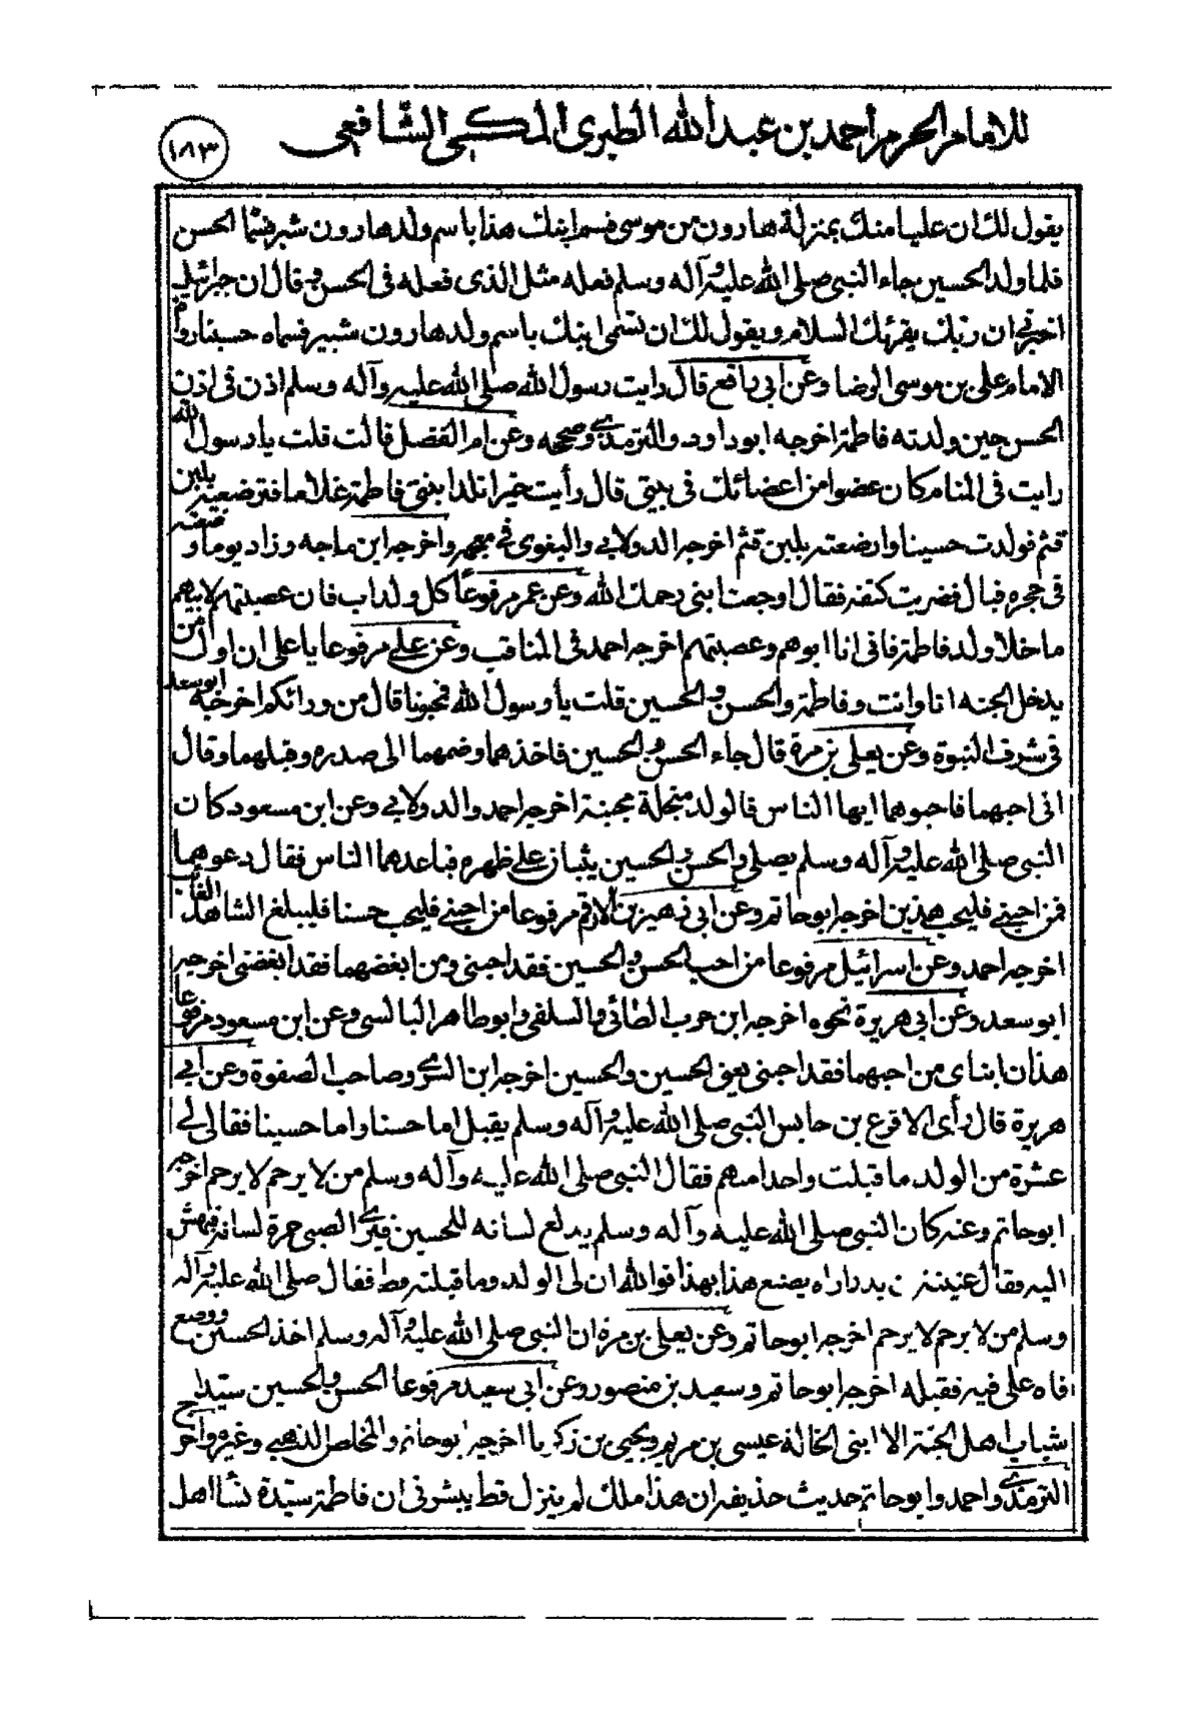 للامام الحرم احمد بن عبد الله الطبرى المكى الشافعى
١٨٣
يقول لك ان عليا منك بمنزلة هارون من موسى فسم ابنك هذا باسم ولد هارون شبر فسماه الحسن
فلما ولد الحسين جاء النبى صلى الله عليه وآله وسلم فعله مثل الذى فعله فى الحسن وقال ان جبرائيل
اخبرنى ان ربك يقرئك السلام ويقول لك ان تسمى ابنك باسم ولد هارون شبير فسماه حسينا رواه
الامام على بن موسى الرضا وعن ابى رافع قال رايت رسول الله صلى الله عليه وآله وسلم اذن فى اذن
الحسن حين ولدته فاطمة اخرجه ابو داود والترمذى وصححه وعن ام الفضل قالت قلت يا رسول الله
رايت فى المنام كان عضوا من اعضائك فى بيتى قال رأيت خيرا تلد ابنتى فاطمة غلاما فترضعيه بلبن
قثم فولدت حسينا وارضعته بلبن قثم اخرجه الدولابى والبغوى فى معجمه واخرجه ابن ماجه وزاد يوما وضعته
فى حجره فبال فضربت كتفه فقال اوجعت ابنى رحمك الله وعن عمر مرفوعا كل ولد اب فان عصبتهم لابيهم
ما خلا ولد فاطمة فانى انا ابوهم وعصبتهم اخرجه احمد فى المناقب وعن على مرفوعا يا على ان اول من
يدخل الجنه انا وانت وفاطمة والحسن والحسين قلت يا رسول الله فمحبونا قال من ورائكم اخرجه ابو سعد
فى شرف النبوة وعن يعلى بن مرة قال جاء الحسن والحسين فاخذهما وضمهما الى صدره وقبلهما وقال
انى احبهما فاحبوهما ايها الناس فالولد مبخلة مجبنة اخرجه احمد والدولابى وعن ابن مسعود كان
النبى صلى الله عليه وآله وسلم يصلى والحسن والحسين يثبان على ظهره فباعدهما الناس فقال دعوهما
فمن احبنى فليحب هذين اخرجه ابو حاتم وعن ابى زهير بن الارقم مرفوعا من احبنى فليحب حسنا فليبلغ الشاهد الغائب
اخرجه احمد وعن اسرائيل مرفوعا من احب الحسن والحسين فقد احبنى ومن ابغضهما فقد ابغضنى اخرجه
ابو سعد وعن ابى هريرة نحوه اخرجه ابن حرب الطائى والسلفى وابو طاهر البالسى وعن ابن مسعود مرفوعا
هذان ابناى من احبهما فقد احبنى يعنى الحسين والحسين اخرجه ابن السرى وصاحب الصفوة وعن ابى
هريرة قال رأى الاقرع بن حابس النبى صلى الله عليه وآله وسلم يقبل اما حسنا واما حسينا فقال لى
عشرة من الولد ما قبلت واحدا منهم فقال النبى صلى الله عليه وآله وسلم من لا يرحم لا يرحم اخرجه
ابو حاتم وعنه كان النبى صلى الله عليه وآله وسلم يدلع لسانه للحسين فيرى الصبى حمرة لسانه فيهش
اليه فقال عيينة بن بدر اراه يصنع هذا بهذا فوالله ان لى الولد وما قبلته قط فقال صلى الله عليه وآله
وسلم من لا يرحم لا يرحم اخرجه ابو حاتم وعن يعلى بن مرة ان النبى صلى الله عليه وآله وسلم اخذ الحسين ووضع
فاه على فيه فقبله اخرجه ابو حاتم وسعيد بن منصور وعن ابى سعيد مرفوعا الحسن والحسين سيدا
شباب اهل الجنة الا ابنى الخالة عيسى بن مريم ويحيى بن زكريا اخرجه ابو حاتم والمخلص الذهبى وغيره واخرج
الترمذى واحمد وابو حاتم حديث حذيفة ان هذا ملك لم ينزل قط يبشرنى ان فاطمة سيدة نسا اهل